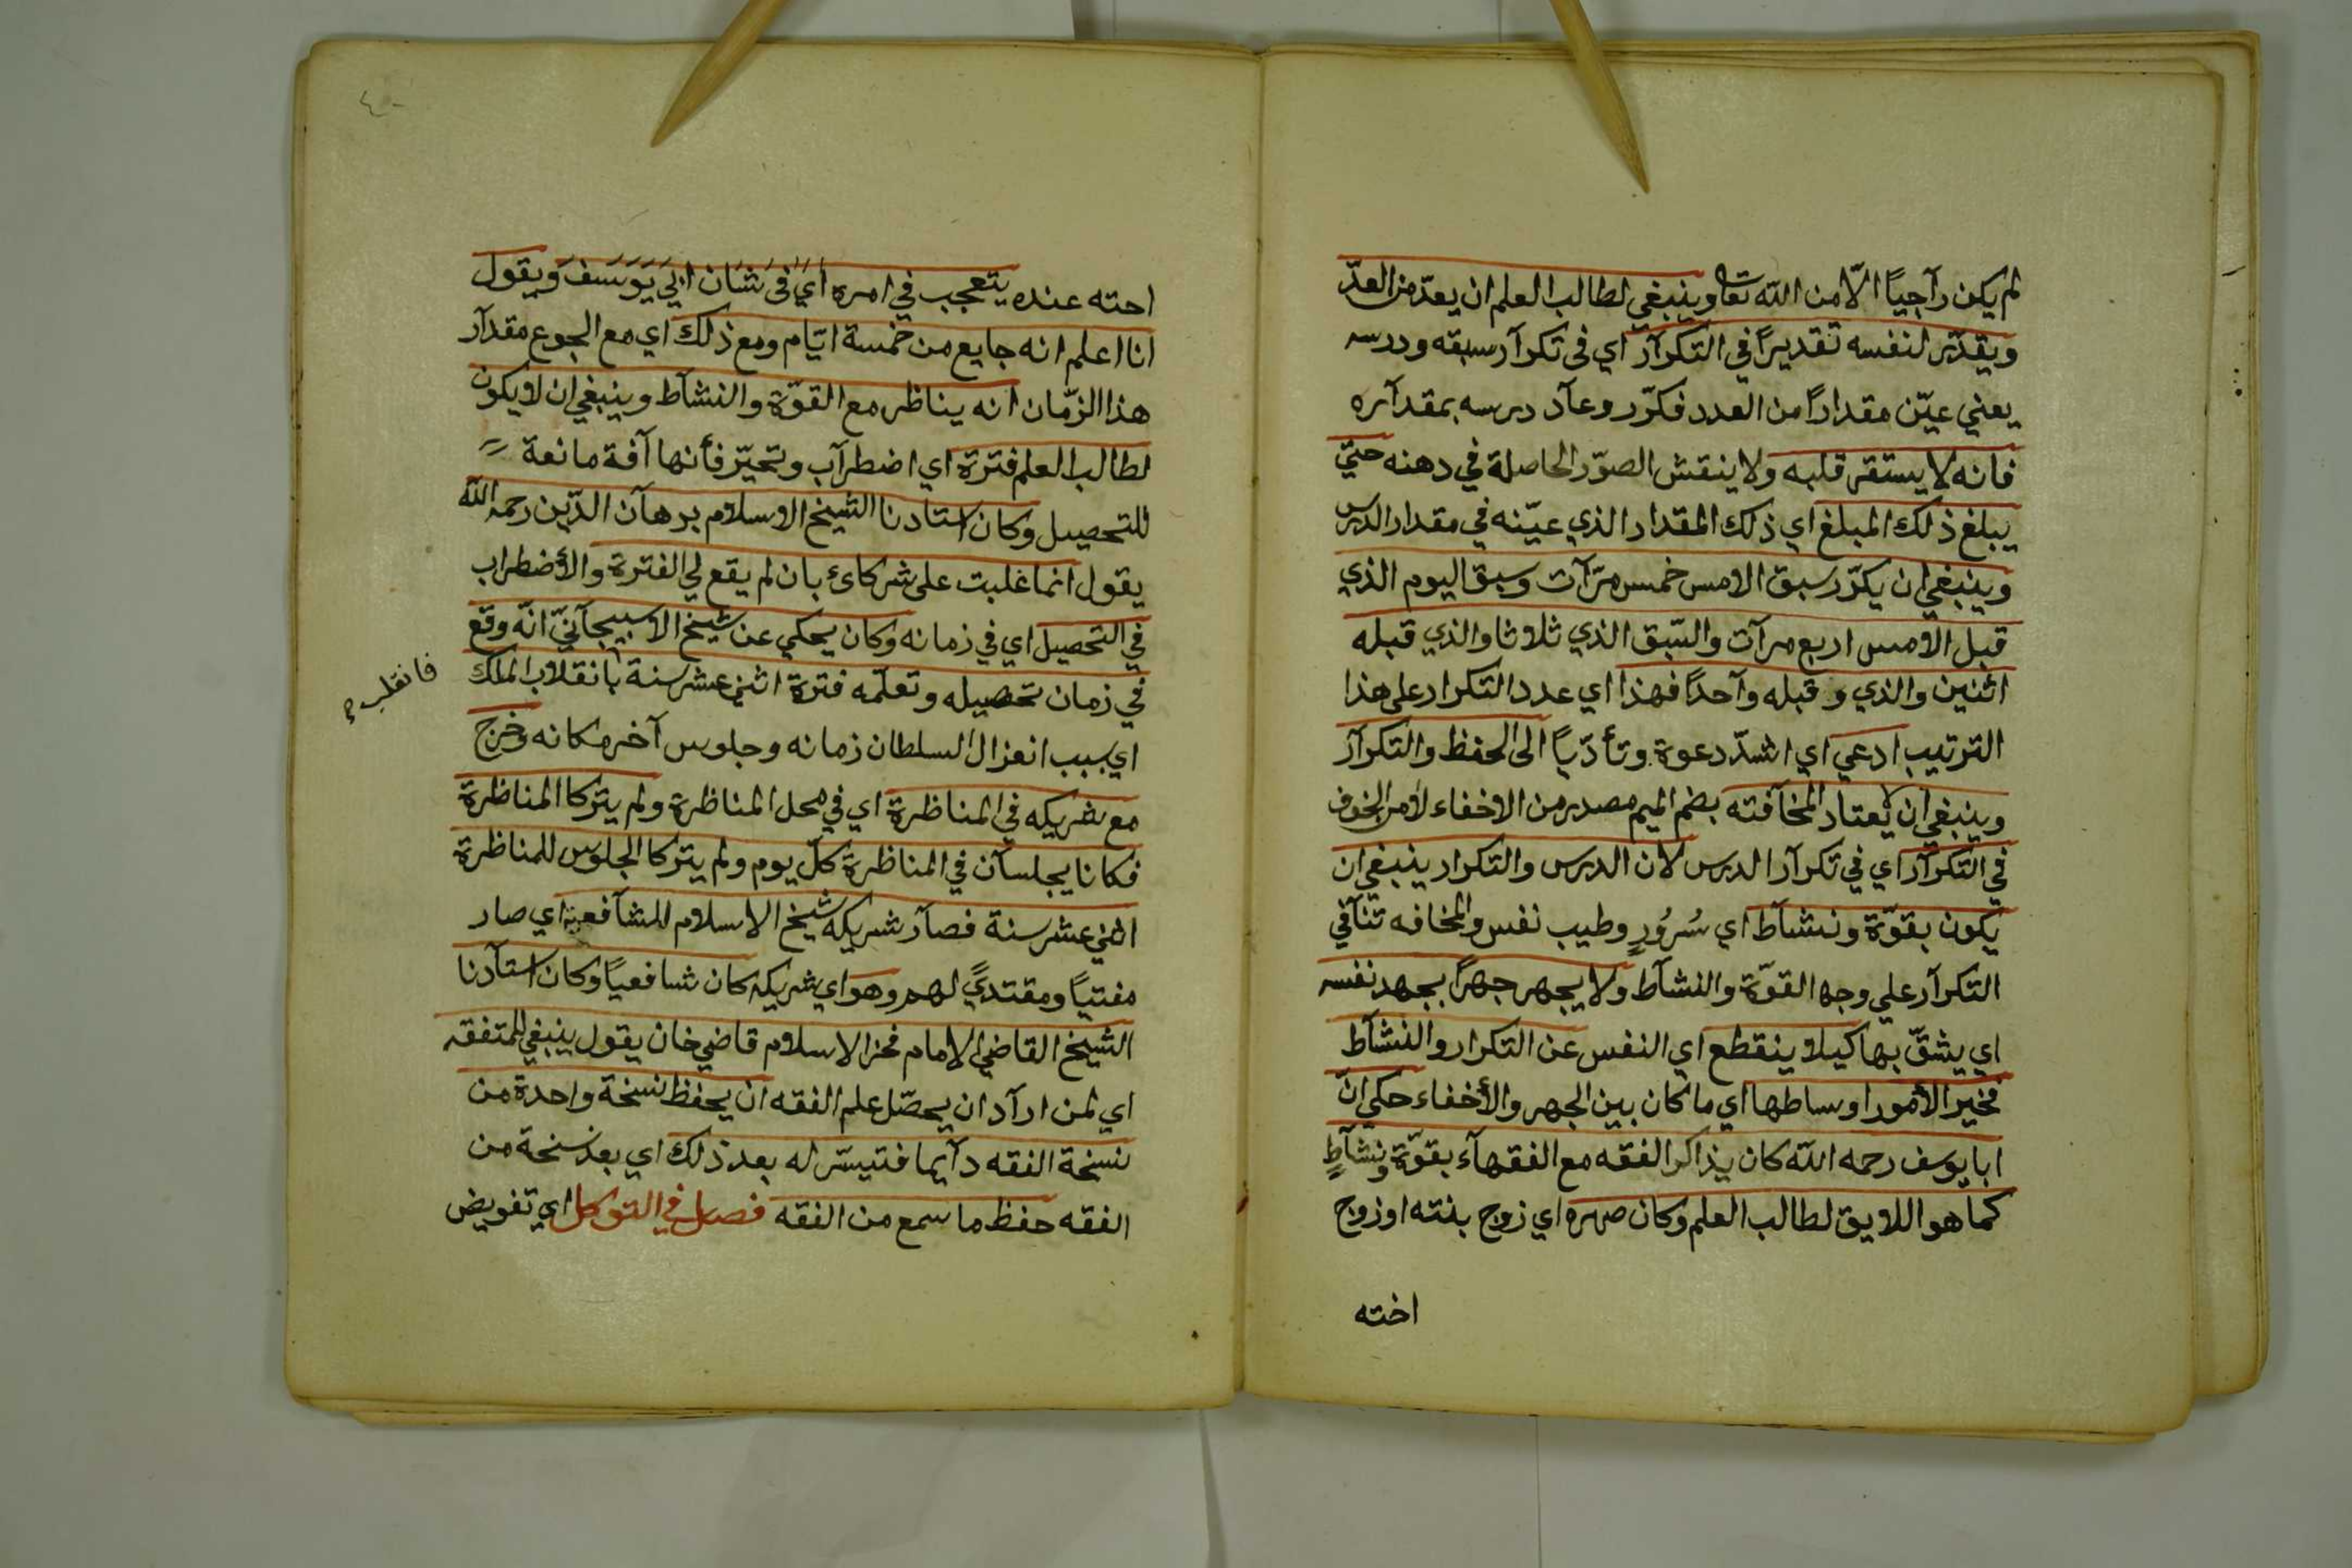 لم يكن رآجيًا الّا من اللّه تعا وينبغي لطالب العلم ان يعدّ من العدّ
ويقدّر لنفسه تقديرًا في التكرآر اي في تكرآر سبقه ودرسه
يعني عيّن مقدارًا من العدد فكرّر وعآد درسه بمقدآره
فانه لا يستقر قلبه ولا ينقش الصوّر الحاصلة في دهنه حتيّ
يبلغ ذلك المبلغ اي ذلك المقدار الذي عيّنه في مقدار الدرس
وينبغي ان يكرّر سبق الامس خمس مرّآت وسبق اليوم الذي
قبل الامس اربع مرآت والسّبق الذي ثلاثا والذي قبله
اثنين والذي و قبله وآحدًا فهذا اي عدد التكرار على هذا
الترتيب ادعي اي اشدّ دعوة وتأدّيًا الى الحفظ والتكرآر
وينبغي ان لا يعتاد المخآفته بضم الميم مصدر من الاخفاء لأمر الخوف
في التكرآر اي في تكرآر الدرس لان الدرس والتكرار ينبغي ان
يكون بقوّة ونشآط اي سُرُورٍ وطيب نفس والمخافه تنآفي
التكرآر علي وجه القوّة والنشآط ولا يجهر جهرًا يجهد نفسه
اي يشقّ بها كيلا ينقطع اي النفس عن التكرار والنشآط
فخير الأمور اوساطها اي ما كان بين الجهر والأخفاء حكي انّ
ابا يوسف رحمه اللّه كان يذاكر الفقه مع الفقهآء بقوّة ونشآطٍ
كما هو اللايق لطالب العلم وكان صهره اي زوج بنته او زوج
اخته
٤٠
احته عنده يتعجب في امره اي في شان ابي يوسف ويقول
انا اعلم انه جايع من خمسة ايّام ومع ذلك اي مع الجوع مقدآر
هذا الزّمان انه يناظر مع القوّة والنشآط وينبغي ان لا يكون
لطالب العلم فترة اي اضطرآب وتحيّر فأنها آفة مانعة
للتحصيل وكان استادنا الشيخ الاسلام برهآن الدّين رحمه اللّه
يقول انما غلبت على شركائ بان لم يقع لي الفترة والأضطراب
في التحصيل اي في زمانه وكان يحكي عن شيخ الاسبيجآنيّ انّه وقع
في زمان تحصيله وتعلّمه فترة اثني عشر سنة بانقلاب الملك
فانقلب
اي بسبب انعزال السلطان زمانه وجلوس آخر مكانه وخرج
مع شريكه في المناظرة اي في محل المناظرة ولم يتركا المناظرة
فكانا يجلسآن في المناظرة كلّ يوم ولم يتركا الجلوس للمناظرة
اثني عشر سنة فصآر شريكه شيخ الاسلام للشآفعية اي صار
مفتيًا ومقتديً لهم وهو اي شريكه كان شافعيًا وكان استآدنا
الشيخ القاضي الامام فخر الاسلام قاضي خان يقول ينبغي للمتفقه
اي لمن ارآد ان يحصّل علم الفقه ان يحفظ نسخة واحدة من
نسخة الفقه دآيما فتيسّر له بعد ذلك اي بعد نسخة من
الفقه حفظ ما سمع من الفقه فصل في التوكل اي تفويض